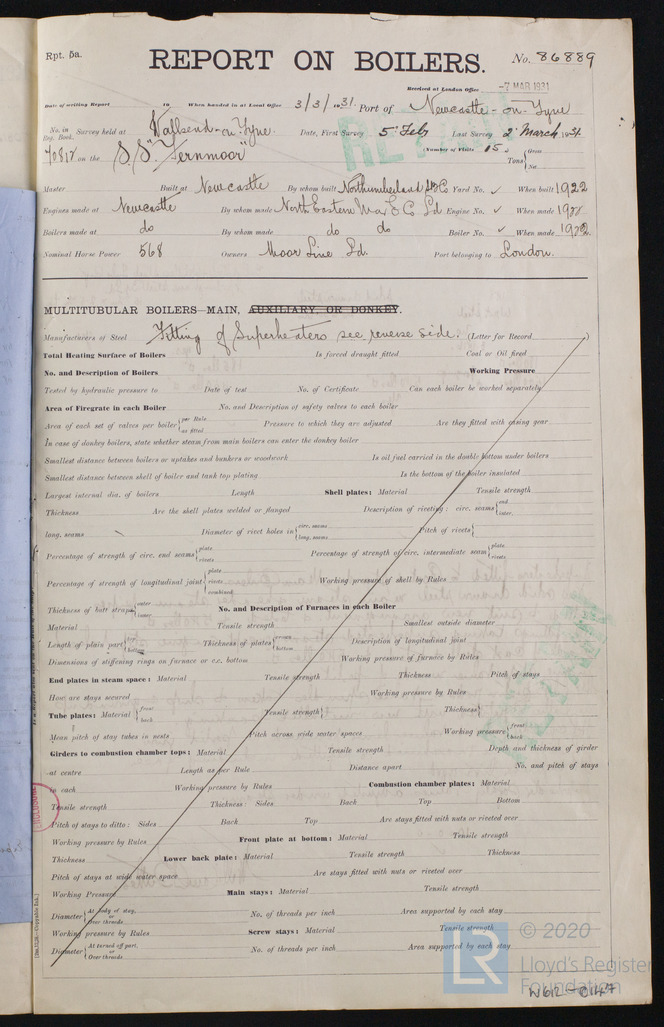 Rpt. 5a.
REPORT ON BOILERS.
No. 86889
Received at London Office -7 MAR 1931
Date of writing Report 19 When handed in at Local Office 3/3/1931. Port of Newcastle-on-Tyne
No. in Reg. Book. Survey held at Wallsend-on-Tyne. Date, First Survey 5th Feb Last Survey 2nd March 1931
70812 on the S.S. "Fernmoor" (Number of Visits 15) Tons Gross Net
Master Built at Newcastle By whom built Northumberland Yard No. ✓ When built 1922
Engines made at Newcastle By whom made North Eastern Mar E C Ld Engine No. ✓ When made 1922
Boilers made at do By whom made do do Boiler No. ✓ When made 1922.
Nominal Horse Power 568 Owners Moor Line Ld. Port belonging to London.
MULTITUBULAR BOILERS—MAIN, AUXILIARY, OR DONKEY.
Manufacturers of Steel Fitting of Superheaters see reverse side. (Letter for Record )
Total Heating Surface of Boilers Is forced draught fitted Coal or Oil fired
No. and Description of Boilers Working Pressure
Tested by hydraulic pressure to Date of test No. of Certificate Can each boiler be worked separately
Area of Firegrate in each Boiler No. and Description of safety valves to each boiler
Area of each set of valves per boiler { per Rule as fitted Pressure to which they are adjusted Are they fitted with easing gear
In case of donkey boilers, state whether steam from main boilers can enter the donkey boiler
Smallest distance between boilers or uptakes and bunkers or woodwork Is oil fuel carried in the double bottom under boilers
Smallest distance between shell of boiler and tank top plating Is the bottom of the boiler insulated
Largest internal dia. of boilers Length Shell plates: Material Tensile strength
Thickness Are the shell plates welded or flanged Description of riveting: circ. seams { end inter.
long. seams Diameter of rivet holes in { circ. seams long. seams Pitch of rivets {
Percentage of strength of circ. end seams { plate rivets Percentage of strength of circ. intermediate seam { plate rivets
Percentage of strength of longitudinal joint { plate rivets combined Working pressure of shell by Rules
Thickness of butt straps { outer inner No. and Description of Furnaces in each Boiler
Material Tensile strength Smallest outside diameter
Length of plain part { top bottom Thickness of plates { crown bottom Description of longitudinal joint
Dimensions of stiffening rings on furnace or c.c. bottom Working pressure of furnace by Rules
End plates in steam space: Material Tensile strength Thickness Pitch of stays
How are stays secured Working pressure by Rules
Tube plates: Material { front back Tensile strength { Thickness {
Mean pitch of stay tubes in nests Pitch across wide water spaces Working pressure { front back
Girders to combustion chamber tops: Material Tensile strength Depth and thickness of girder
at centre Length as per Rule Distance apart No. and pitch of stays
in each Working pressure by Rules Combustion chamber plates: Material
Tensile strength Thickness: Sides Back Top Bottom
Pitch of stays to ditto: Sides Back Top Are stays fitted with nuts or riveted over
Working pressure by Rules Front plate at bottom: Material Tensile strength
Thickness Lower back plate: Material Tensile strength Thickness
Pitch of stays at wide water space Are stays fitted with nuts or riveted over
Working Pressure Main stays: Material Tensile strength
Diameter { At body of stay, or Over threads No. of threads per inch Area supported by each stay
Working pressure by Rules Screw stays: Material Tensile strength
Diameter { At turned off part, or Over threads No. of threads per inch Area supported by each stay
LR © 2020
Lloyd's Register
Foundation
W612-0147